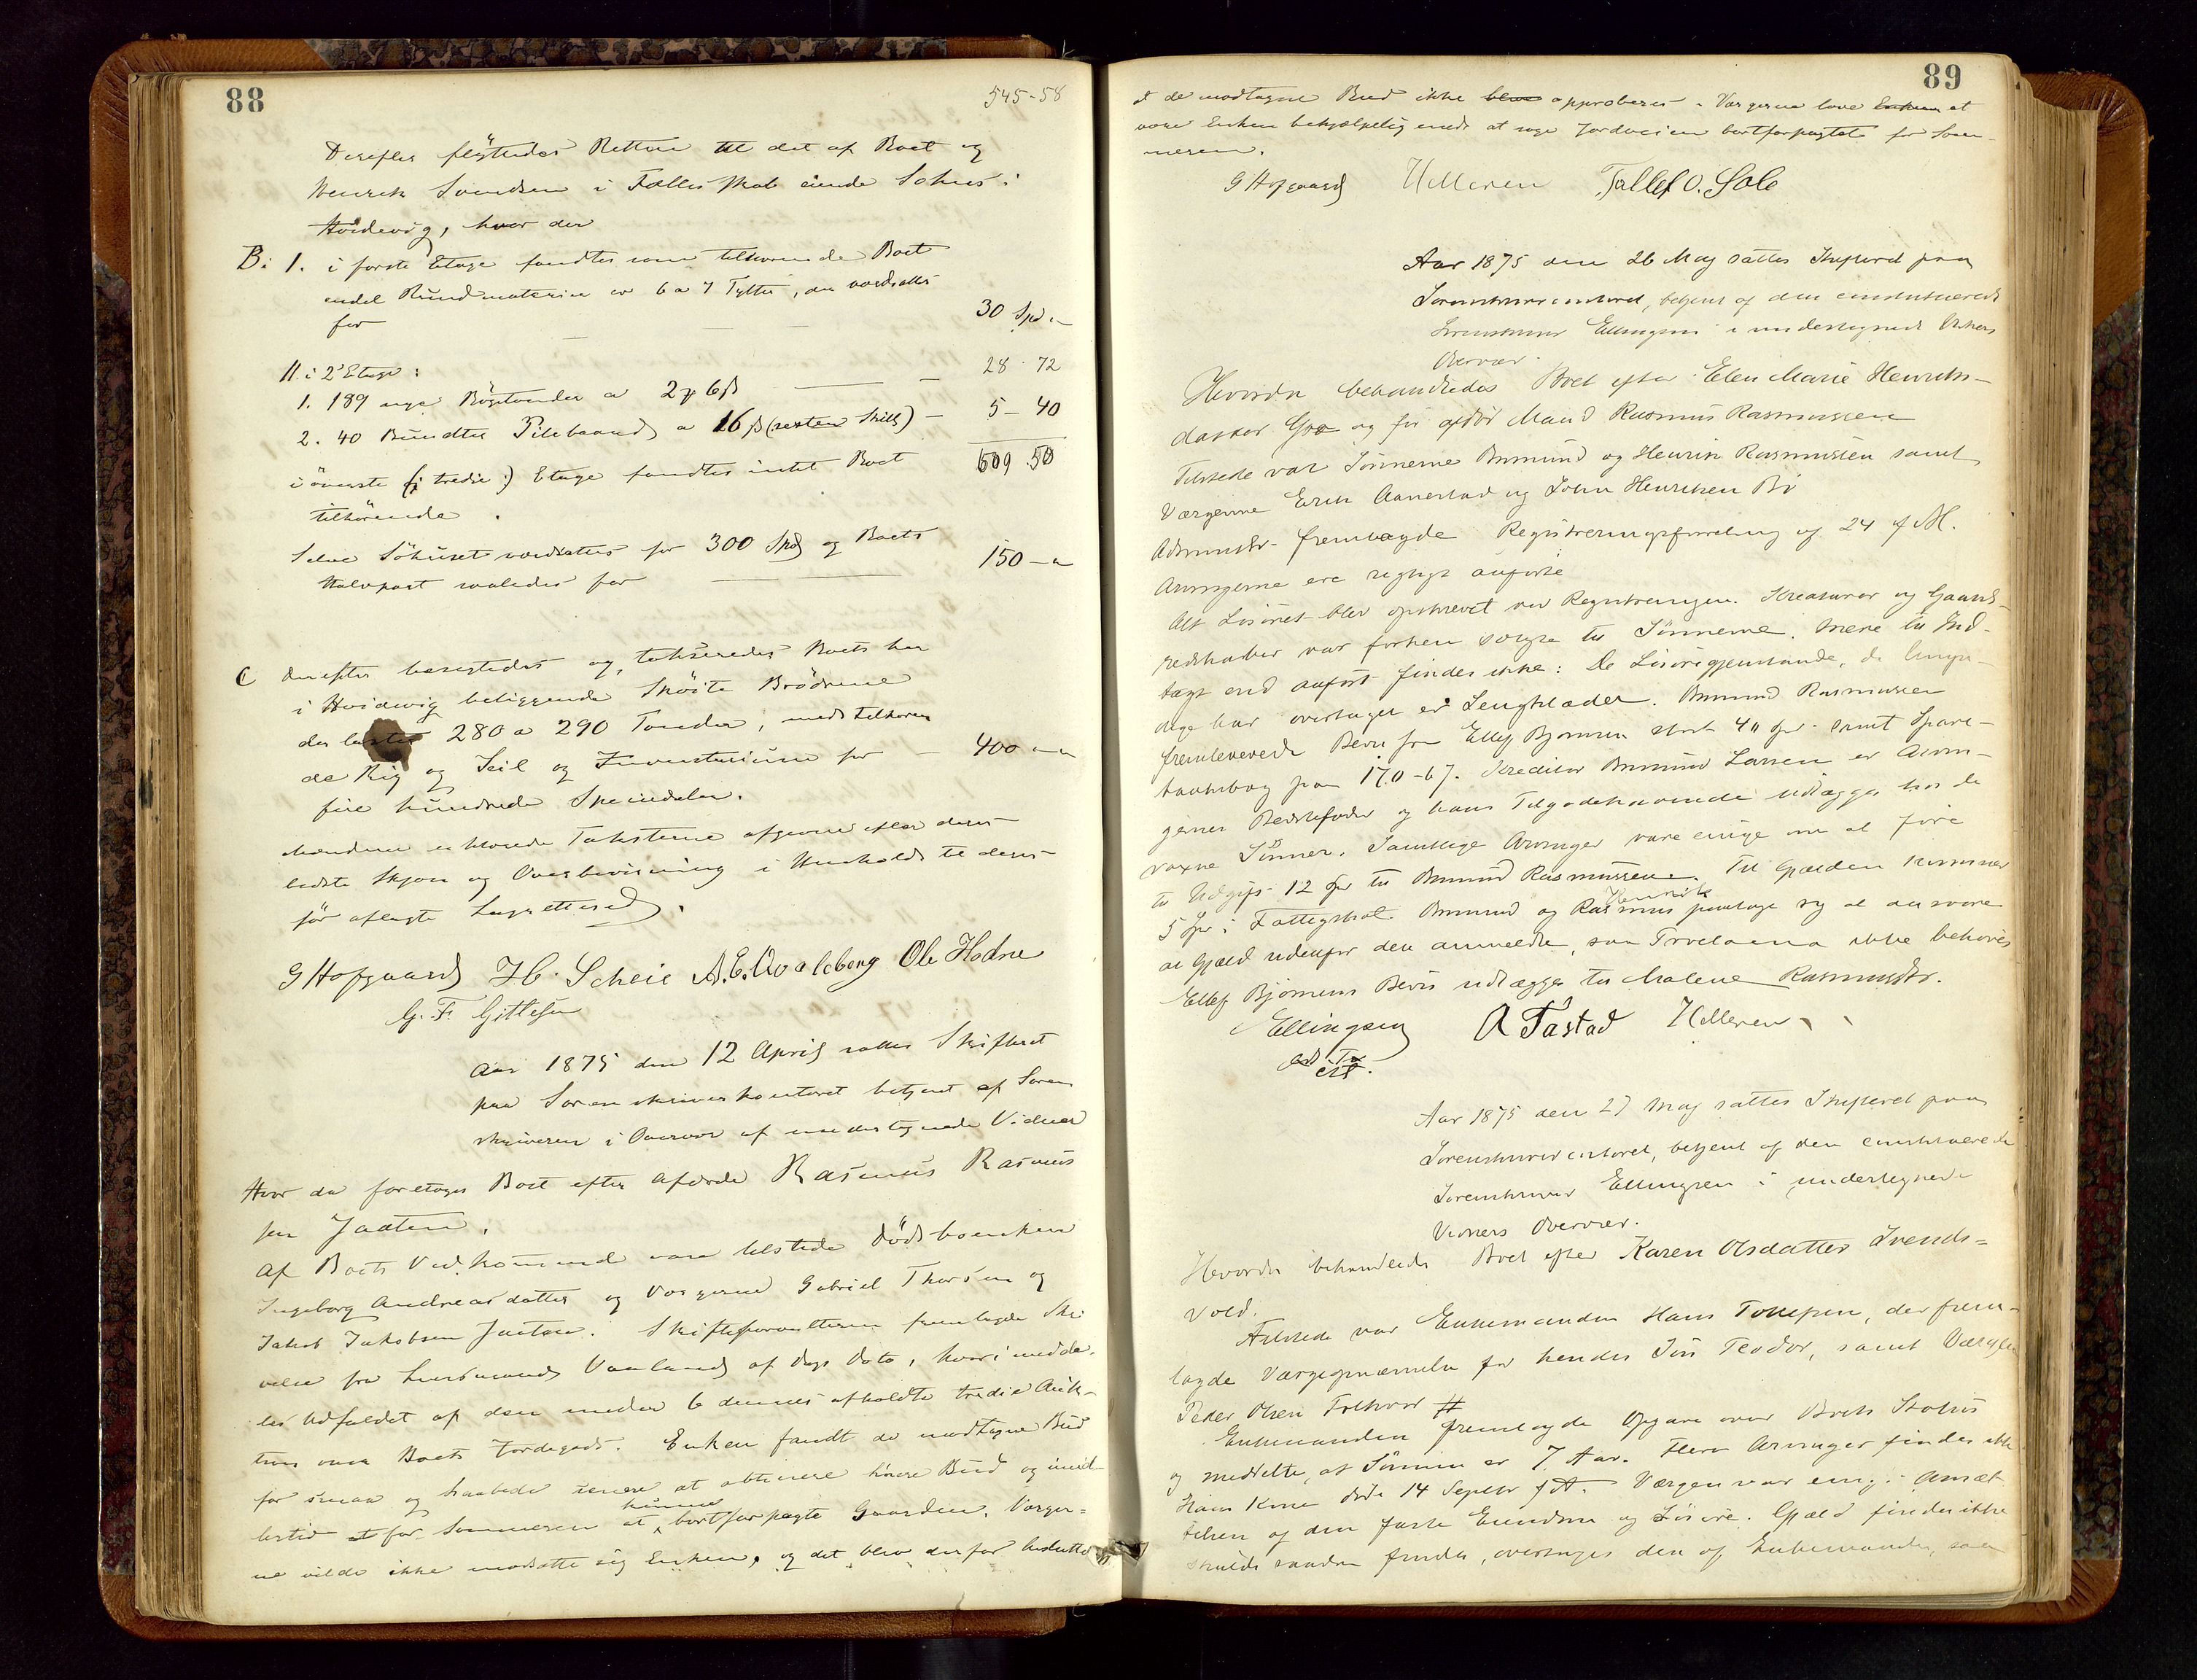 88
545-58
Derefter flyttedes Retten til det af Boet og
Henrik Svendsen i Fællesskab eiende Søhus i
Hvidevig, hvor der
B: I. i første Etage fandtes som tilhørende Boet
endel Rundmaterier ca 6 a 7 Tylter, der værdsattes
for — — 30 Spd. "
II. i 2' Etage:
1. 189 nye Tønder a 2 ƒ 6 ß — — 28 - 72
2. 40 Bundter Pilebaand a 16 ß (sexten Skill) — 5 - 40
i øverste (: tredie :) Etage fandtes intet Boet 609 50
tilhørende .
Selve Søhuset værdsattes for 300 Spd og Boets
Halvpart saaledes for — — 150 — "
C Derefter besigtedes og taxeredes Boets her
i Hvidevig beliggende Skøite Brødrene
der 280 a 290 Tønder, med tilhøren
de Rig og Seil og Inventarium for — 400 — "
fire hundrede Speciedaler.
Mændene erklærede Taksterne afgivne efter deres
bedste Skjøn og Overbevisning i Henhold til deres
før aflagte Lagretteed.
G Hofgaard H. Scheie A.E. Qvaleberg Ole Hodne
G. F. Gittesen
Aar 1875 den 12 April sattes Skifteret
paa Sorenskriverkontoret betjent af Soren
skriveren i Overvær af undertegnede Vidner
Hvor da foretoges Boet efter afdøde Rasmus Rasmus
sen Jaaten.
Af Boets Vedkommend vare tilstede Dødsboenken
Ingeborg Andreasdatter og Værgerne Gabriel Thorsen og
Jakob Jakobsen Jaaten. Skifteforvalteren fremlagde Skri
velse fra Lensmand Vaaland af Dags Dato, hvori medde-
les Udfaldet af den under 6 dennes afholdte tredie Auk-
tion over Boets Jordegods. Enken fandt de modtagne Bud
for smaa og haabede senere at obtinere høiere Bud og imid-
lertid at for Sommeren at kunne bortforpagte Gaarden. Værger-
ne vilde ikke modsætte sig Enken, og det blev derfor besluttet
89
at de modtagne Bud ikke blev approberes. Værgerne love Enken at
være Enken behjælpelig med at søge Jordveien bortforpagtet for Som-
meren.
G Hofgaard Helleren Tallef O. Sole
Aar 1875 den 26 Maj sattes Skifteret paa
Sorenskrivercontoret, betjent af den constituerede
Sorenskriver Ellingsen i undertegnede Vidners
Overvær.
Hvorda behandledes Boet efter Elen Marie Henriks-
datter Goa og før afdød Mand Rasmus Rasmussen
Tilstede var Sønnerne Ommund og Henrik Rasmussen samt
Værgerne Erik Aanestad og John Henriksen Bø
Administr. fremlagde Registreringsforretning af 24 f M.
Arvingerne ere rigtigt anførte
Alt Løsøret blev opskrevet ved Registreringen. Kreaturer og Gaards-
redskaber var forhen solgte til Sønnerne. Mere til Ind-
tægt end anført findes ikke: De Løsøregjenstande, de
har overtaget er Sengklæder. Ommund Rasmussen
fremleverede Bevis fra Ellef Bjørnsen stort 40 Spd. samt Spare-
bankbog paa 170-67. Kreditor Ommund Larsen er Arvin-
gernes Bedstefader og hans Tilgodehavende udlægges hos de
voxne Sønner. Samtlige Arvinger vare enige om at føre
til Udgift 12 Spd til Ommund Rasmussen. Til Gjælden kommer
5 Spd i Fattigskat. Ommund og Rasmus Henrik paatoge sig at ansvare
al Gjæld udenfor den anmeldte, saa Proclama ikke behøves
Ellef Bjørnsens Bevis udlægges til Malene Rasmusdtr.
Ellingsen A Tastad Helleren
cst.
Aar 1875 den 27 Maj sattes Skifteret paa
Sorenskrivercontoret, betjent af den constituerede
Sorenskriver Ellingsen i undertegnede
Vidners Overvær.
Hvorda behandledes Boet efter Karen Olsdatter Svends-
vold.
Tilstede var Enkemanden Hans Tollefsen, der frem-
lagde Værgeopnævnelse for hendes Søn Teodor, samt Værgen
Peder Olsen #
Enkemanden fremlagde Opgave over Boets Status
og meddelte, at Sønnen er 7 Aar. Flere Arvinger findes ikke
Hans Kone døde 14 Septbr f A. Værgen var enig i Ansæt
telsen af den faste Eiendom og Løsøre. Gjæld findes ikke
skulde saadan findes, overtages den af Enkemanden, saa